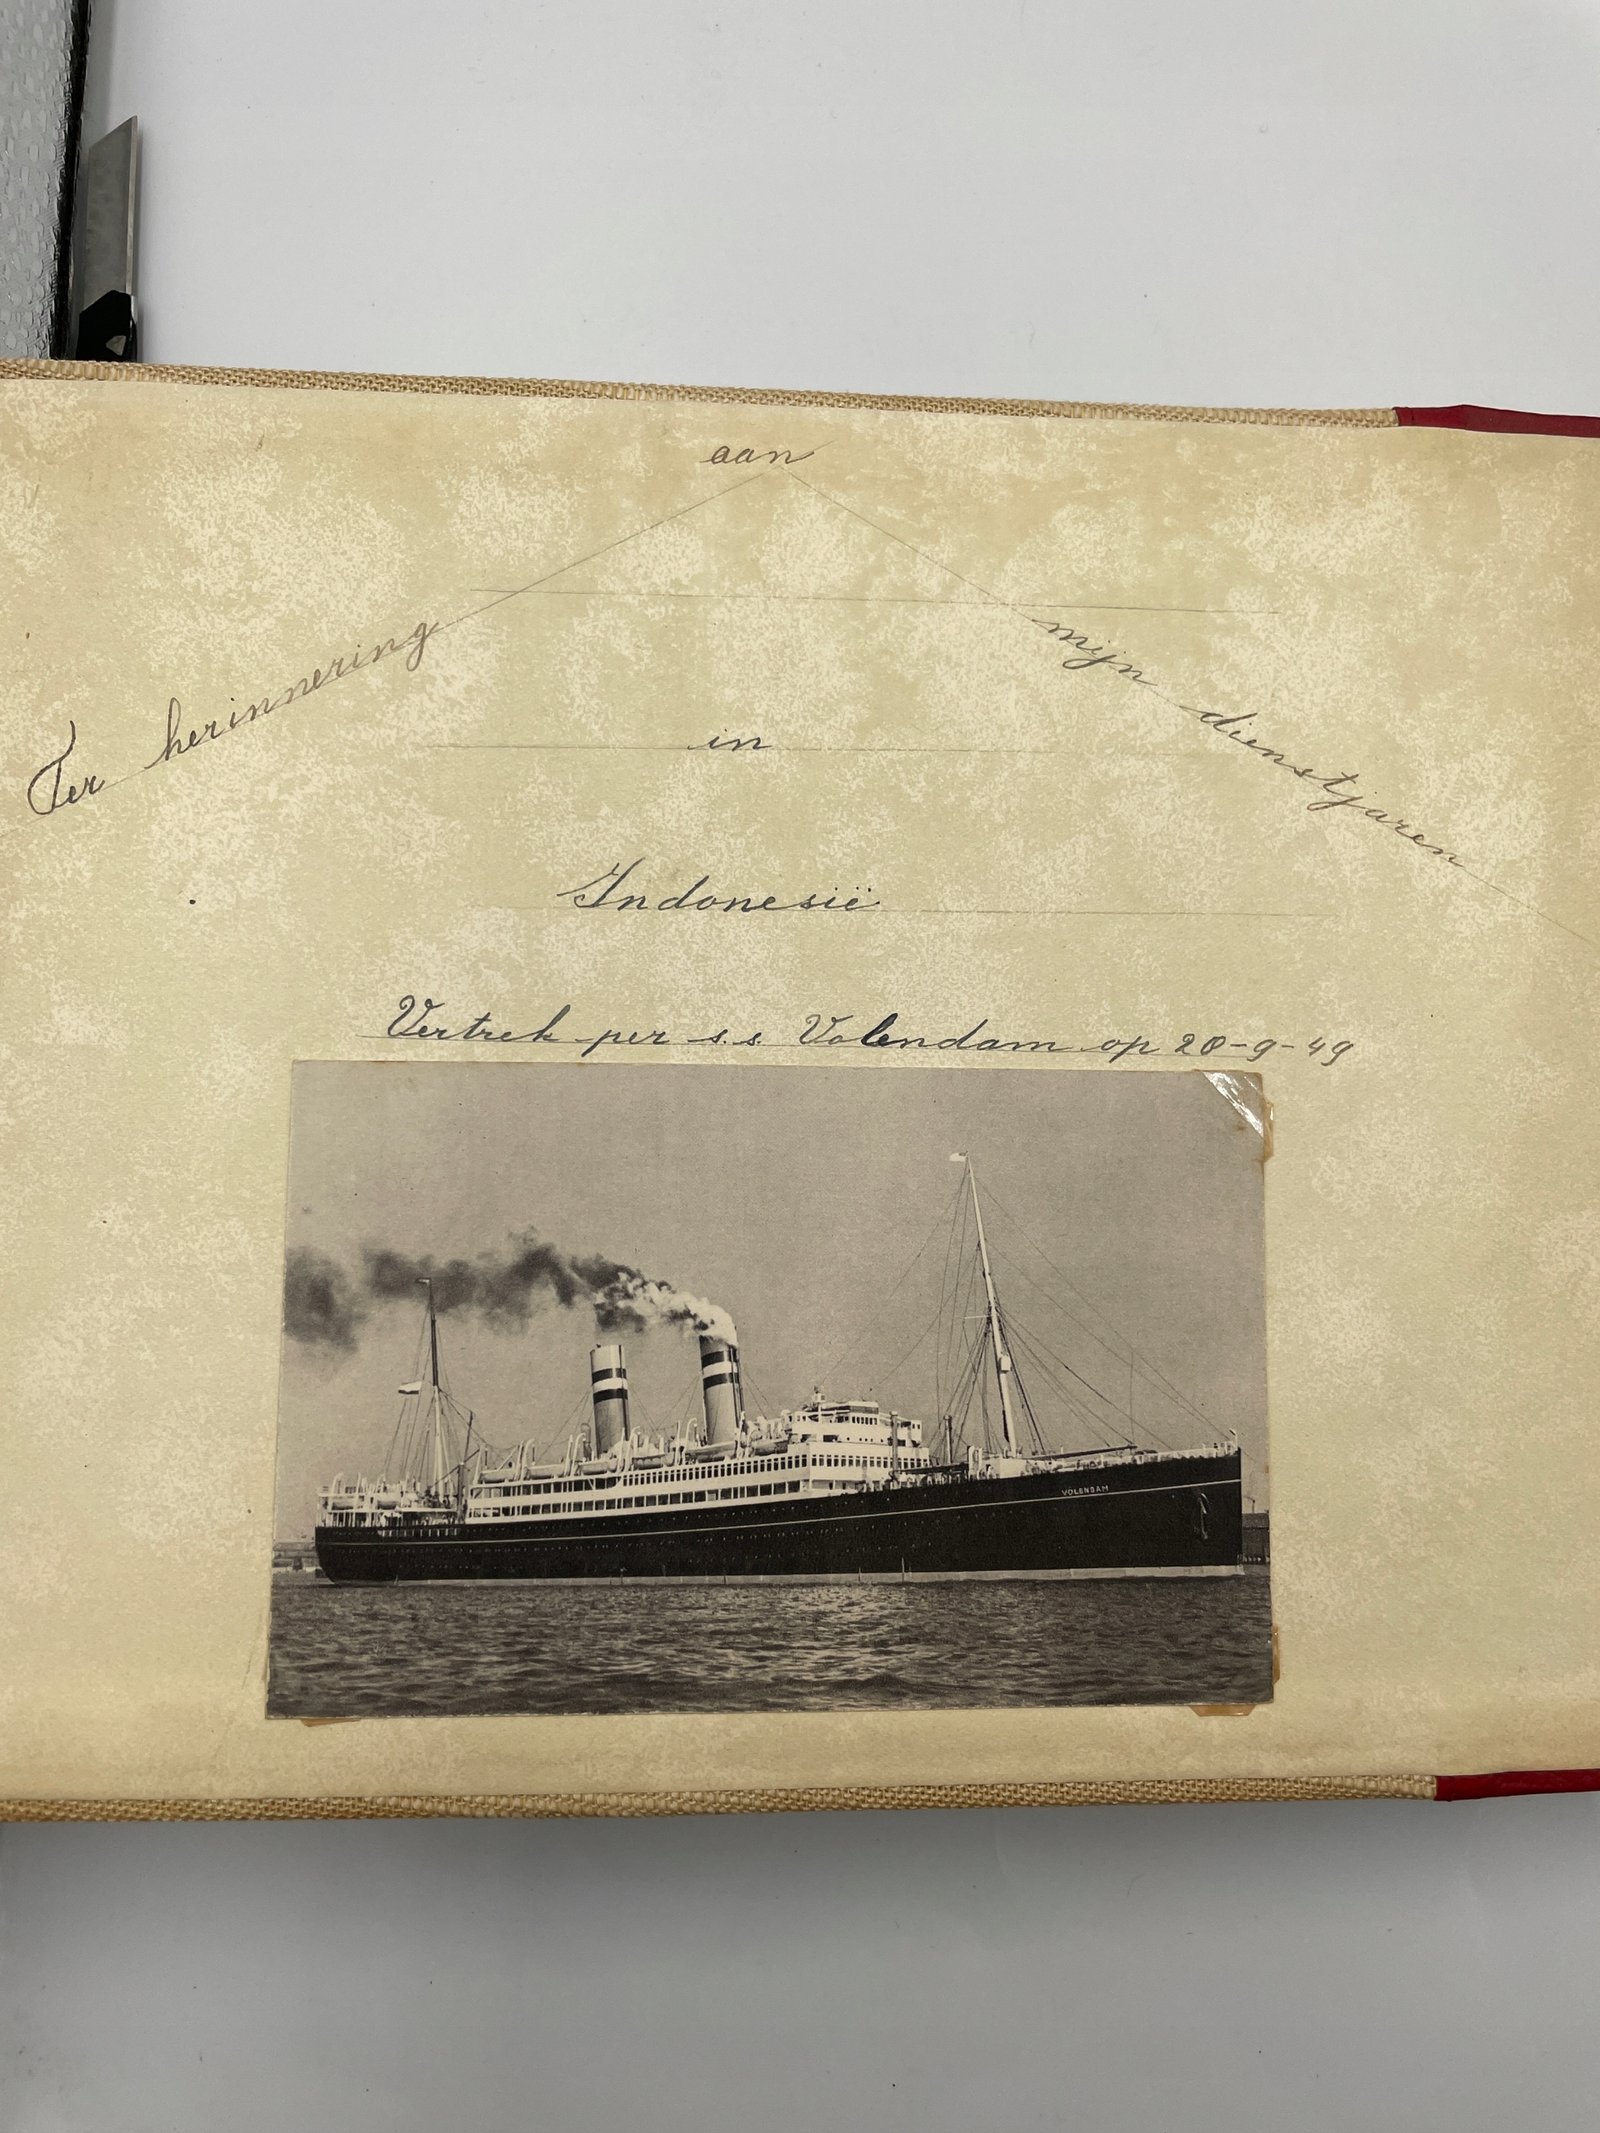 Ter herinnering aan mijn dienstjaren
in
Indonesië
Vertrek per s.s. Volendam op 20-9-49
VOLENDAM